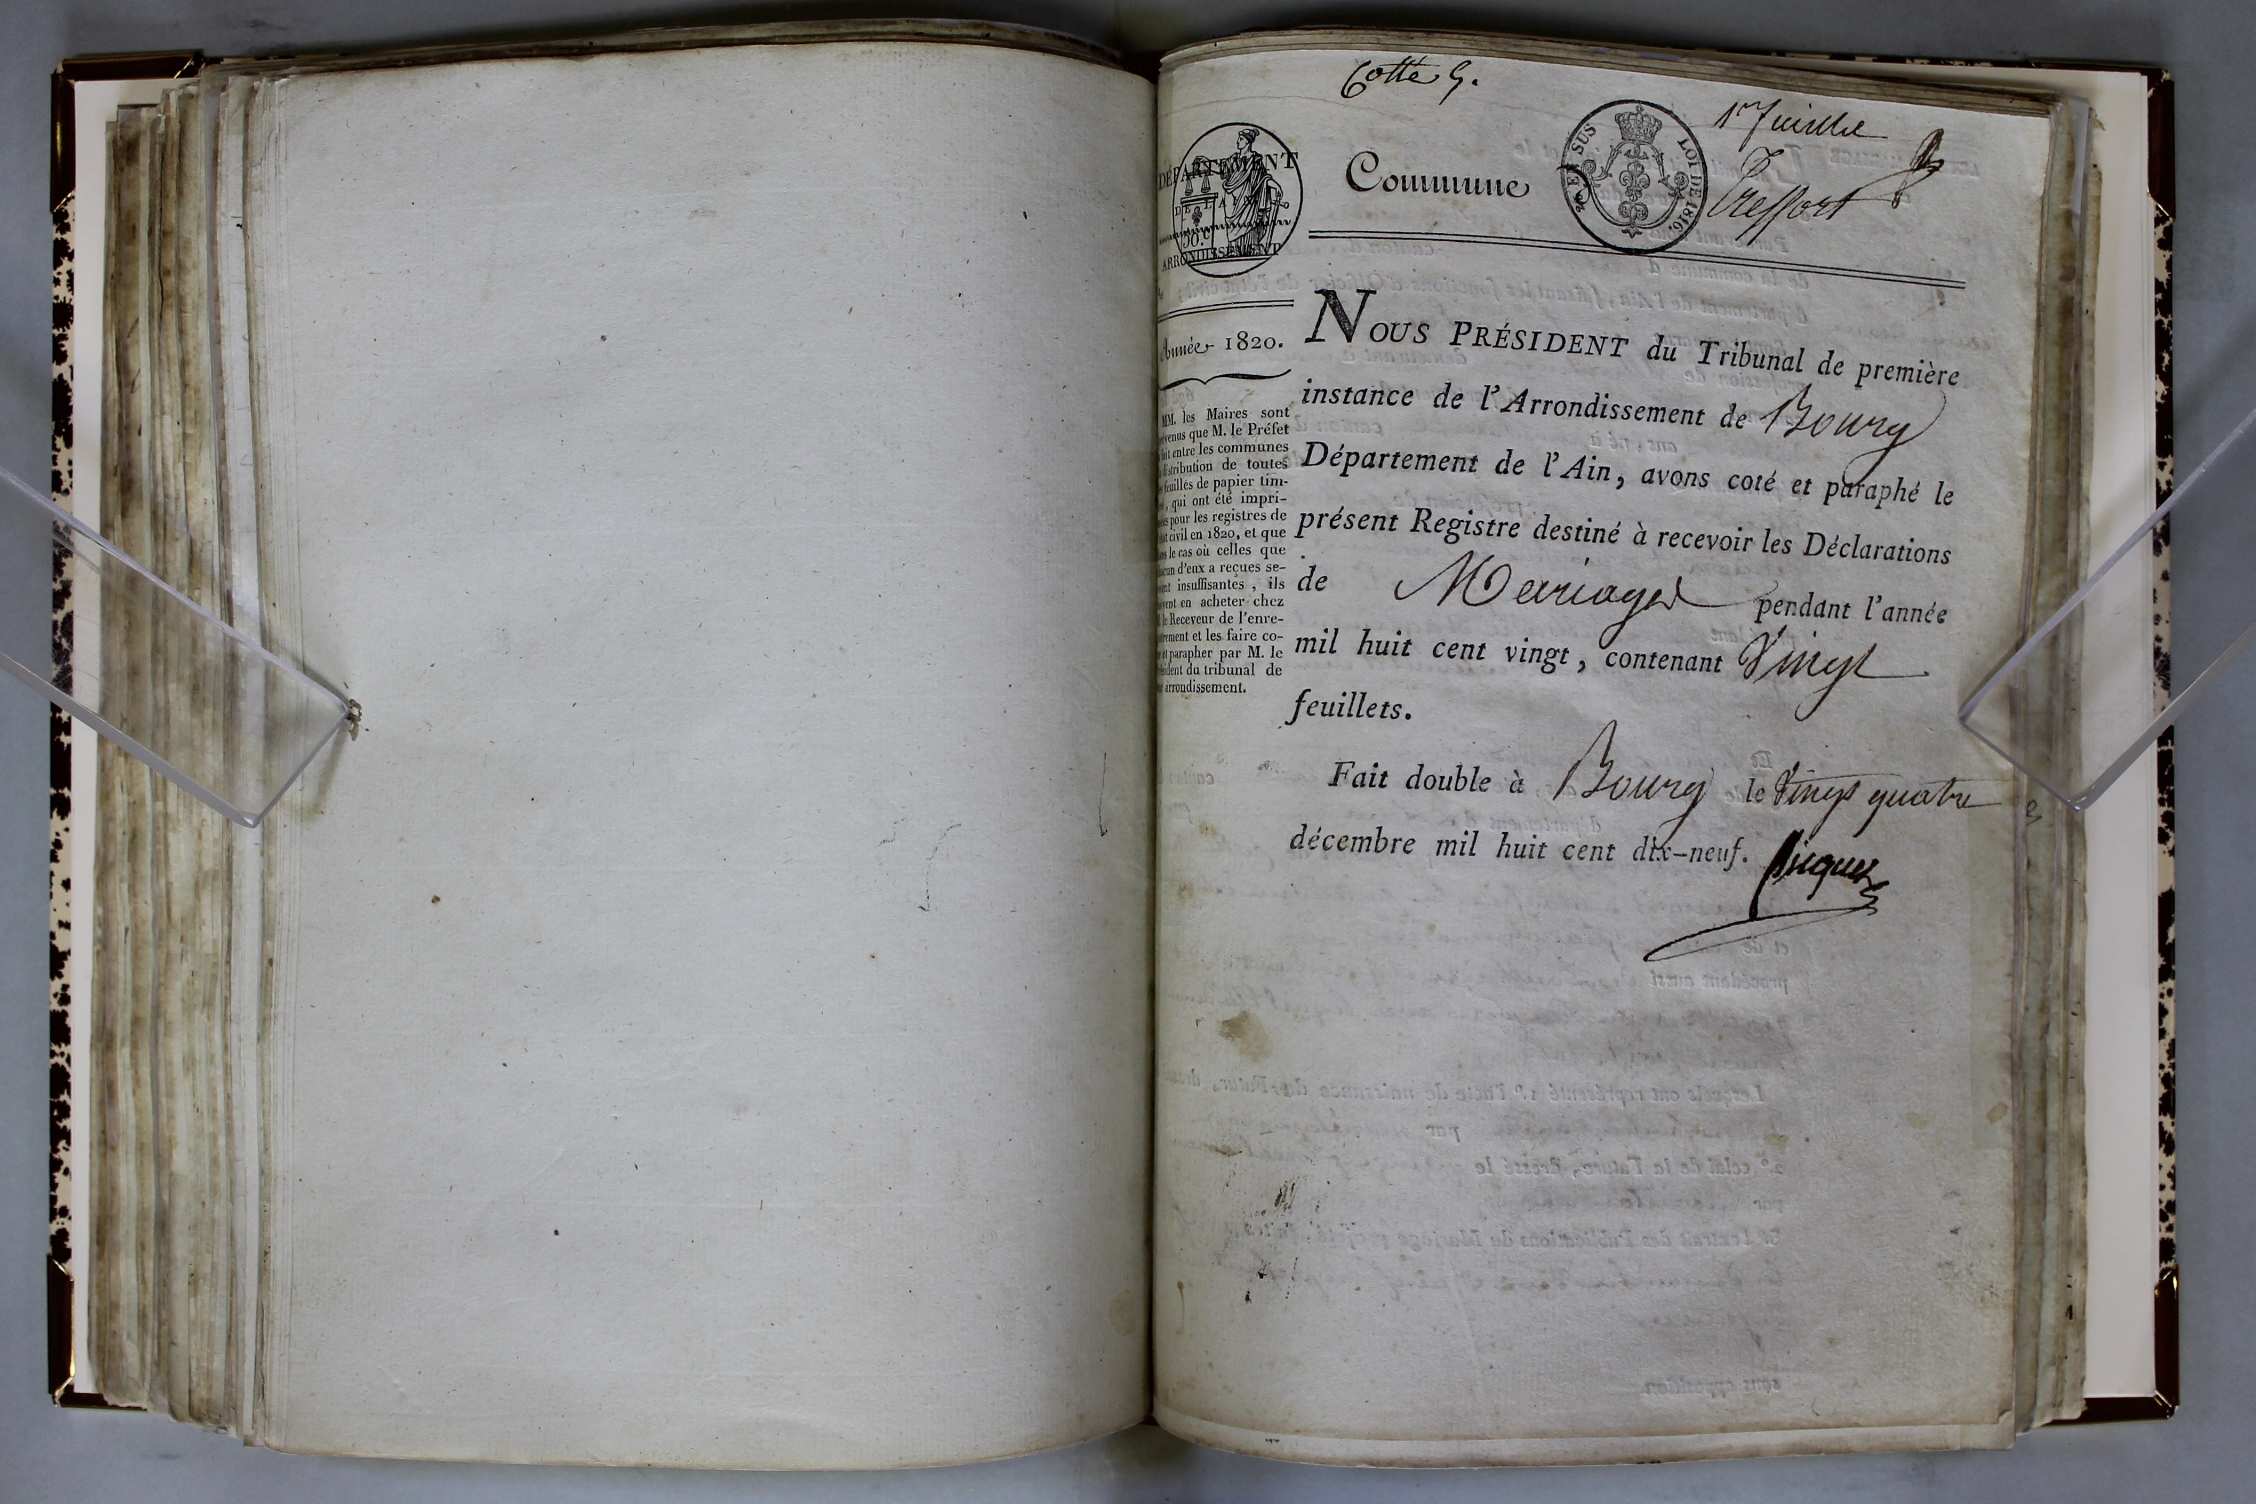 Cotté G.
1er feuillet
DÉPARTEMENT
DE L'AIN
50.c
ARRONDISSEMENT
Commune
EN SUS
LOI DE 1816.
Treffort
Année 1820.
MM. les Maires sont
prévenus que M. le Préfet
fait entre les communes
distribution de toutes
feuilles de papier tim-
, qui ont été impri-
pour les registres de
civil en 1820, et que
le cas où celles que
d'eux a reçues se-
insuffisantes, ils
en acheter chez
le Receveur de l'enre-
et les faire co-
et parapher par M. le
du tribunal de
arrondissement.
NOUS PRÉSIDENT du Tribunal de première
instance de l'Arrondissement de Bourg
Département de l'Ain, avons coté et paraphé le
présent Registre destiné à recevoir les Déclarations
de Mariages pendant l'année
mil huit cent vingt, contenant Vingt
feuillets.
Fait double à Bourg le Vingt quatre
décembre mil huit cent dix-neuf.